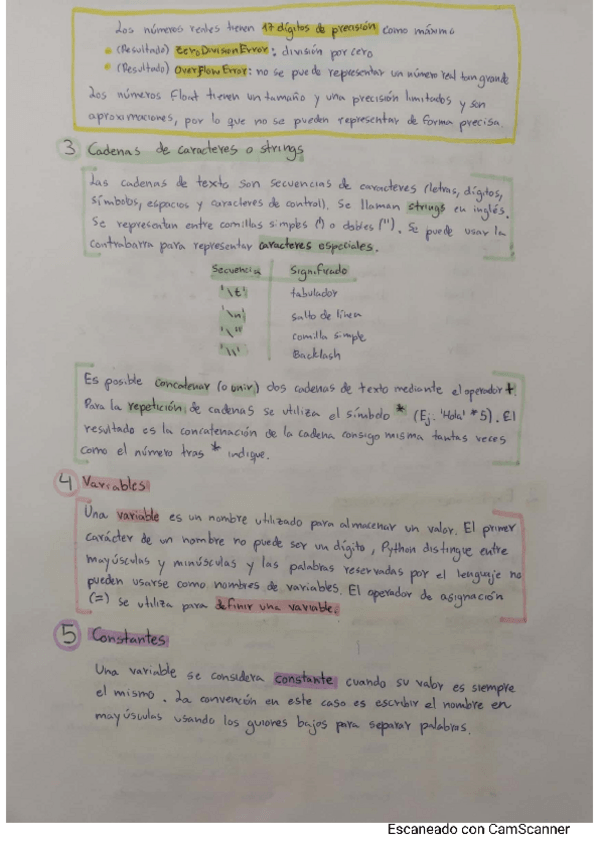 Los números reales tienen 17 dígitos de precisión como máximo
(Resultado) ZeroDivisonError: división por cero
(Resultado) OverFlowError: no se puede representar un número real tan grande
Los números Float tienen un tamaño y una precisión limitados y son
aproximaciones, por lo que no se pueden representar de forma precisa.
3 Cadenas de caracteres o strings
Las cadenas de texto son secuencias de caracteres (letras, dígitos,
símbolos, espacios y caracteres de control). Se llaman strings en inglés.
Se representan entre comillas simples (') o dobles ("). Se puede usar la
contrabarra para representar caracteres especiales.
Secuencia Significado
'\t' tabulador
'\n' salto de línea
'\'' comilla simple
'\\' Backlash
Es posible concatenar (o unir) dos cadenas de texto mediante el operador +.
Para la repetición de cadenas se utiliza el símbolo * (Ej. 'Hola' * 5). El
resultado es la concatenación de la cadena consigo misma tantas veces
como el número tras * indique.
4 Variables
Una variable es un nombre utilizado para almacenar un valor. El primer
carácter de un nombre no puede ser un dígito, Python distingue entre
mayúsculas y minúsculas y las palabras reservadas por el lenguaje no
pueden usarse como nombres de variables. El operador de asignación
(=) se utiliza para definir una variable.
5 Constantes
Una variable se considera constante cuando su valor es siempre
el mismo. La convención en este caso es escribir el nombre en
mayúsculas usando los guiones bajos para separar palabras.
Escaneado con CamScanner